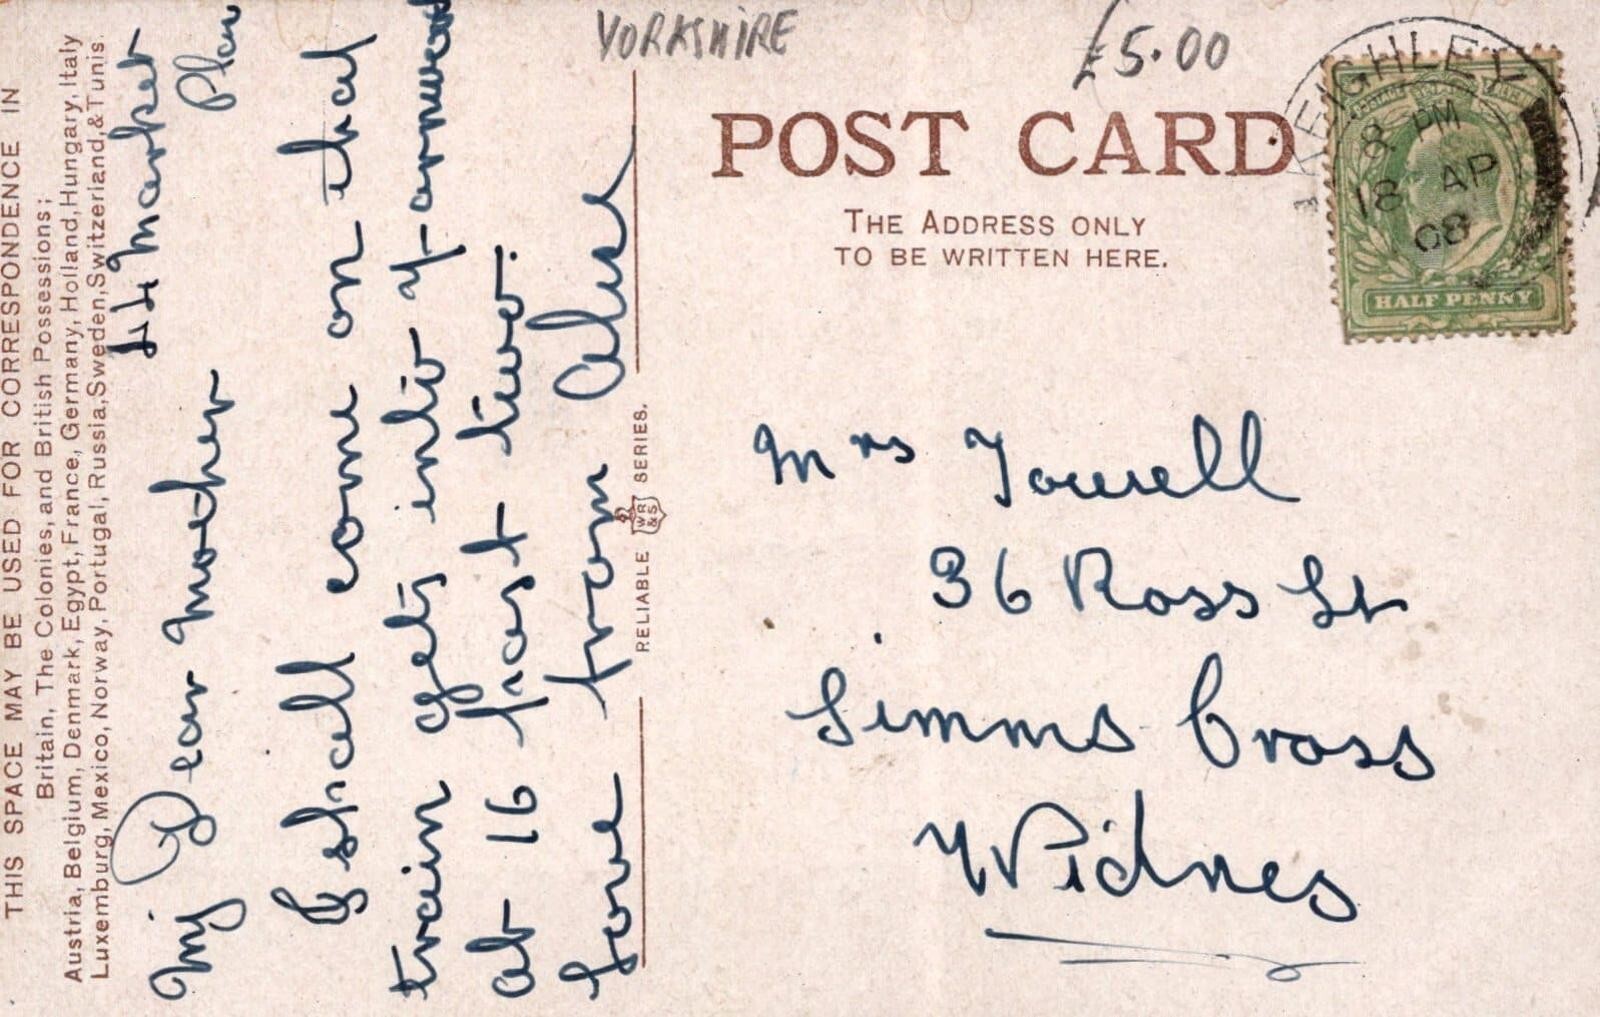 YORKSHIRE
£5.00
POST CARD
THE ADDRESS ONLY
TO BE WRITTEN HERE.
KEIGHLEY
8 PM
18 AP
08
HALF PENNY
THIS SPACE MAY BE USED FOR CORRESPONDENCE IN
Britain, The Colonies, and British Possessions;
Austria, Belgium, Denmark, Egypt, France, Germany, Holland, Hungary, Italy
Luxemburg, Mexico, Norway, Portugal, Russia, Sweden, Switzerland, & Tunis.
44 Market
My Dear Mother
I shall come on that
train gets into
at 16 past two.
love from
RELIABLE WR&S SERIES.
Mrs Towell
36 Ross St
Simms Cross
Widnes